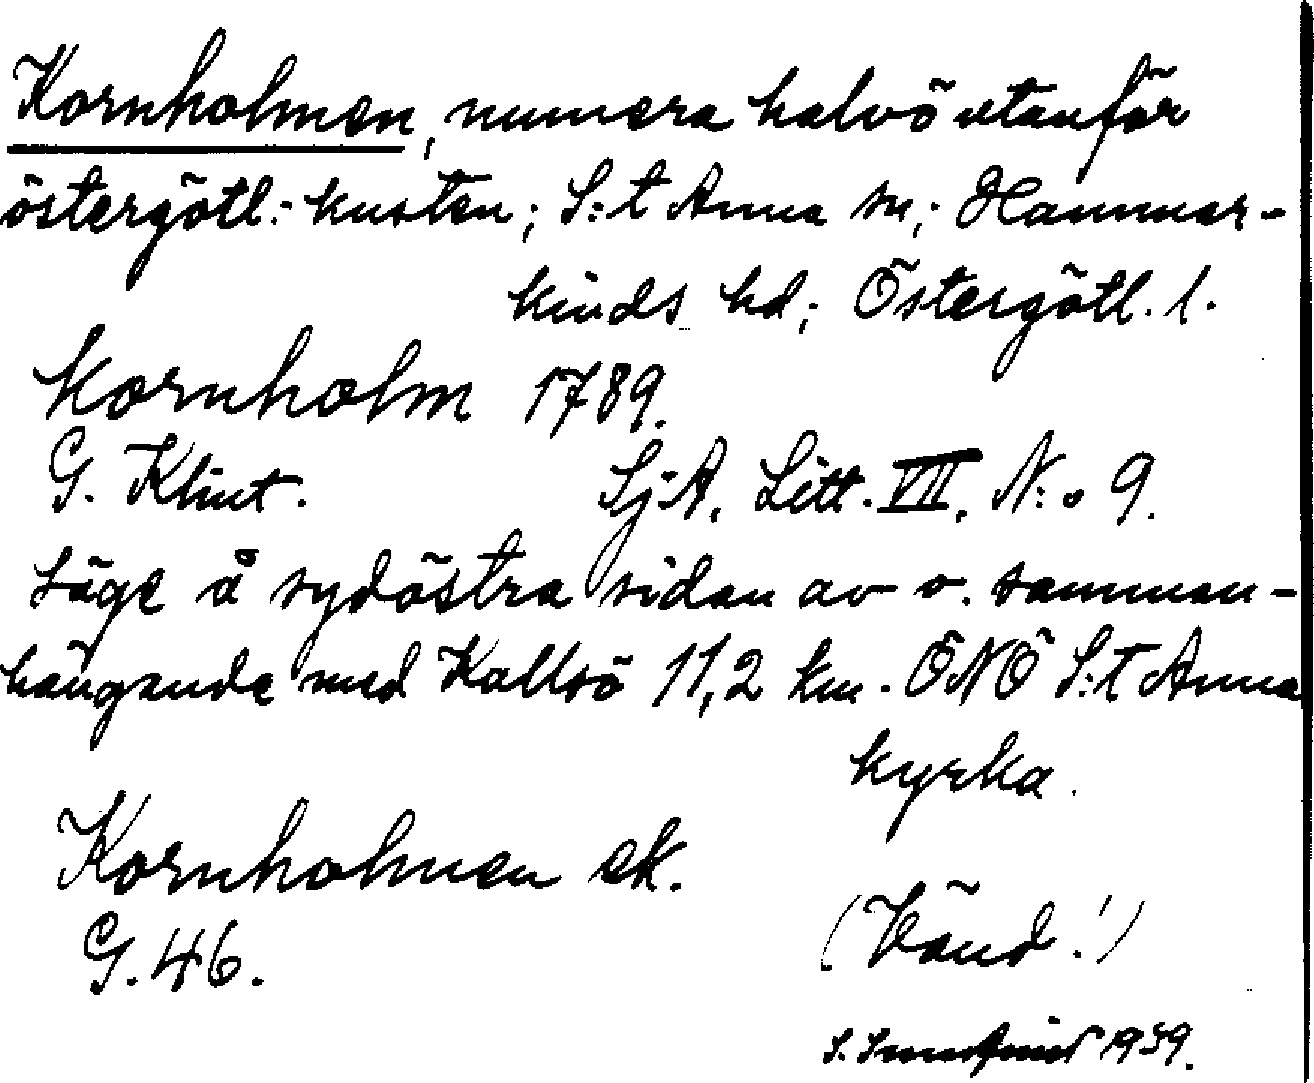 Kornholmen, numera halvö utanför
östergötl:- kusten; S:t Anna sn; Hammar-
kinds hd; Östergötl. l.
Kornholm 1789.
G. Klint. SjA. Litt. VII. N:o 9.
Läge å sydöstra sidan av o. samman-
hängande med Kallsö 11,2 km. ÖNÖ S:t Anna
kyrka.
Kornholmen ek.
G. 46.
(Vänd!)
S. 1939.